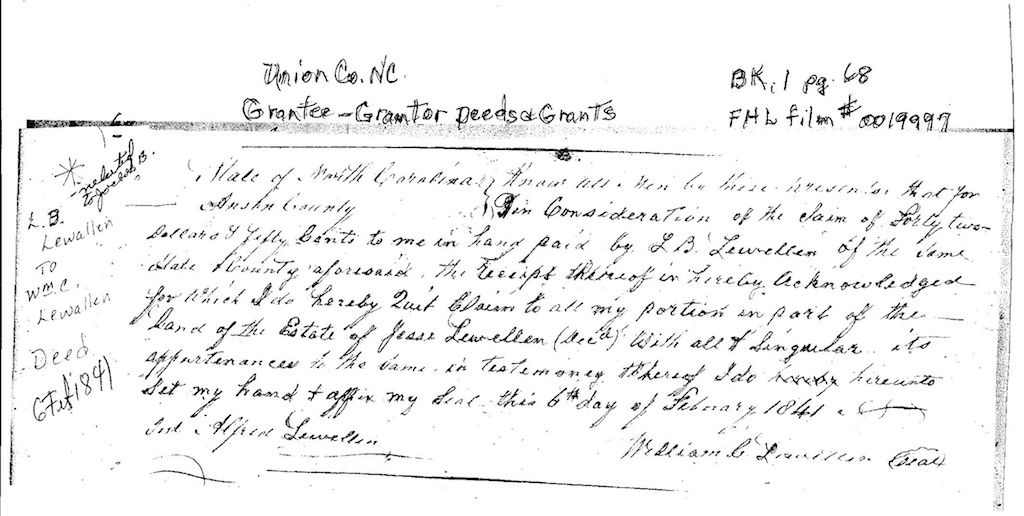 Union Co. NC.
Grantee - Grantor Deeds & Grants
BK. 1 pg. 68
FHL film # 0019997
L. B.
Lewallen
TO
Wm C.
Lewallen
Deed
6 Feb 1841
State of North Carolina } Know all Men by these presents that for
Anson County } & in Consideration of the Sum of Forty two
Dollars & fifty Cents to me in hand paid by L B. Lewellen of the same
State & County aforesaid the receipt thereof is hereby Acknowledged
for which I do hereby Quit Claim to all my portion in part of the
Land of the Estate of Jesse Lewellen (Decd) With all & Singular its
appertenances to the same in testemoney thereof I do hereunto
Set my hand & affix my Seal this 6th day of Febuary 1841
Test Alfred Lewellen
William C Lewellen (Seal)